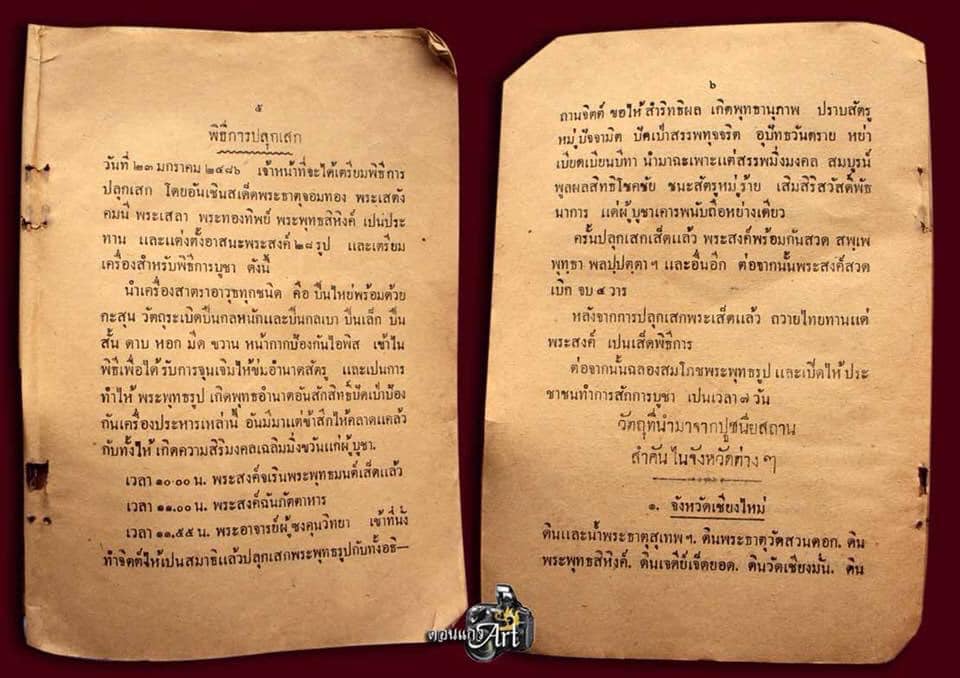 ๕
พิธีการปลุกเสก
วันที่ ๒๓ มกราคม ๒๔๘๖ เจ้าหน้าที่จะได้เตรียมพิธีการ
ปลุกเสก โดยอันเชินสเด็ดพระธาตุจอมทอง พระเสตัง
คมนี พระเสลา พระทองทิพย์ พระพุทธสิหิงค์ เปนประ
ทาน และแต่งตั้งอาสนะพระสงค์ ๒๘ รูป และเตรียม
เครื่องสำหรับพิธีการบูชา ดังนี้
นำเครื่องสาตราอาวุธทุกชนิด คือ ปืนไหย่พร้อมด้วย
กะสุน วัตถุระเบิดปืนกลหนักและปืนกลเบา ปืนเล็ก ปืน
สั้น ดาบ หอก มีด ขวาน หน้ากากป้องกันไอพิส เข้าไน
พิธีเพื่อได้รับการจุนเจิมไห้ข่มอำนาดสัตรู และเปนการ
ทำไห้ พระพุทธรูป เกิดพุทธอำนาดอันสักสิทธิ์ปัดเป่าป้อง
กันเครื่องประหารเหล่านี้ อันมีมาแต่ข้าสึกไห้คลาดแคล้ว
กับทั้งไห้ เกิดความสิริมงคลเฉลิมมิ่งขวันแก่ผู้บูชา.
เวลา ๑๐.๐๐ น. พระสงค์จเรินพระพุทธมนต์เส็ดแล้ว
เวลา ๑๑.๐๐ น. พระสงค์ฉันภัตตาหาร
เวลา ๑๑.๕๕ น. พระอาจารย์ผู้ซงคุนวิทยา เข้าที่นั่ง
ทำจิตต์ไห้เปนสมาธิแล้วปลุกเสกพระพุทธรูปกับทั้งอธิ—
๖
ถานจิตต์ ขอไห้ สำริทธิผล เกิดพุทธานุภาพ ปราบสัตรู
หมู่ปัจจามิต ปัดเป่าสรรพทุจจริต อุปัทธวันตราย หย่า
เบียดเบียนบีทา นำมาฉะเพาะแต่สรรพมิ่งมงคล สมบูรน์
พูลผลสิทธิโชคชัย ชนะสัตรูหมู่ร้าย เสิมสิริสวัสดิ์พัธ
นาการ แด่ผู้บูชาเคารพนับถือหย่างเดียว
ครั้นปลุกเสกเส็ดแล้ว พระสงค์พร้อมกันสวด สพฺเพ
พุทฺธา พลปฺปตฺตา ฯ และอื่นอีก ต่อจากนั้นพระสงค์สวด
เบิก จบ ๔ วาร
หลังจากการปลุกเสกพระเส็ดแล้ว ถวายไทยทานแด่
พระสงค์ เปนเส็ดพิธีการ
ต่อจากนั้นฉลองสมโภชพระพุทธรูป และเปิดไห้ ประ
ชาชนทำการสักการบูชา เปนเวลา ๗ วัน
วัตถุที่นำมาจากปูชนียสถาน
สำคัน ไนจังหวัดต่าง ๆ
๑. จังหวัดเชียงไหม่
ดินและน้ำพระธาตุสุเทพ ฯ. ดินพระธาตุวัดสวนดอก. ดิน
พระพุทธสิหิงค์. ดินเจดีย์เจ็ดยอด. ดินวัดเชียงมั่น. ดิน
ดอนแก้ว
Art